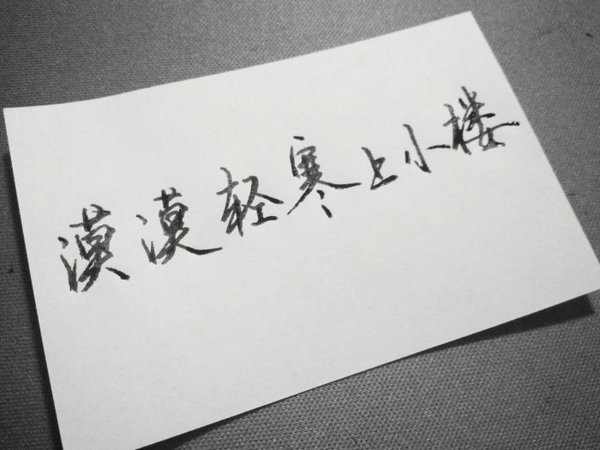 漠漠轻寒上小楼